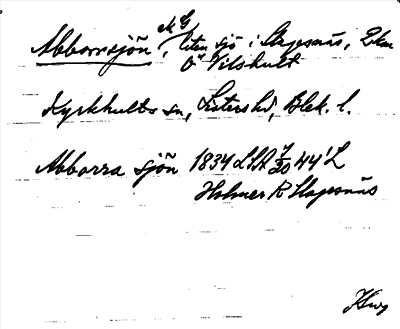 NG
Abborrsjön, liten sjö i Slagesnäs, 2 km
Ö Vilshult
Kyrkhults sn, Listers hd, Blek. l.
Abborra sjön 1834 LSA 7/20 44' L
Holmer R Slagesnäs